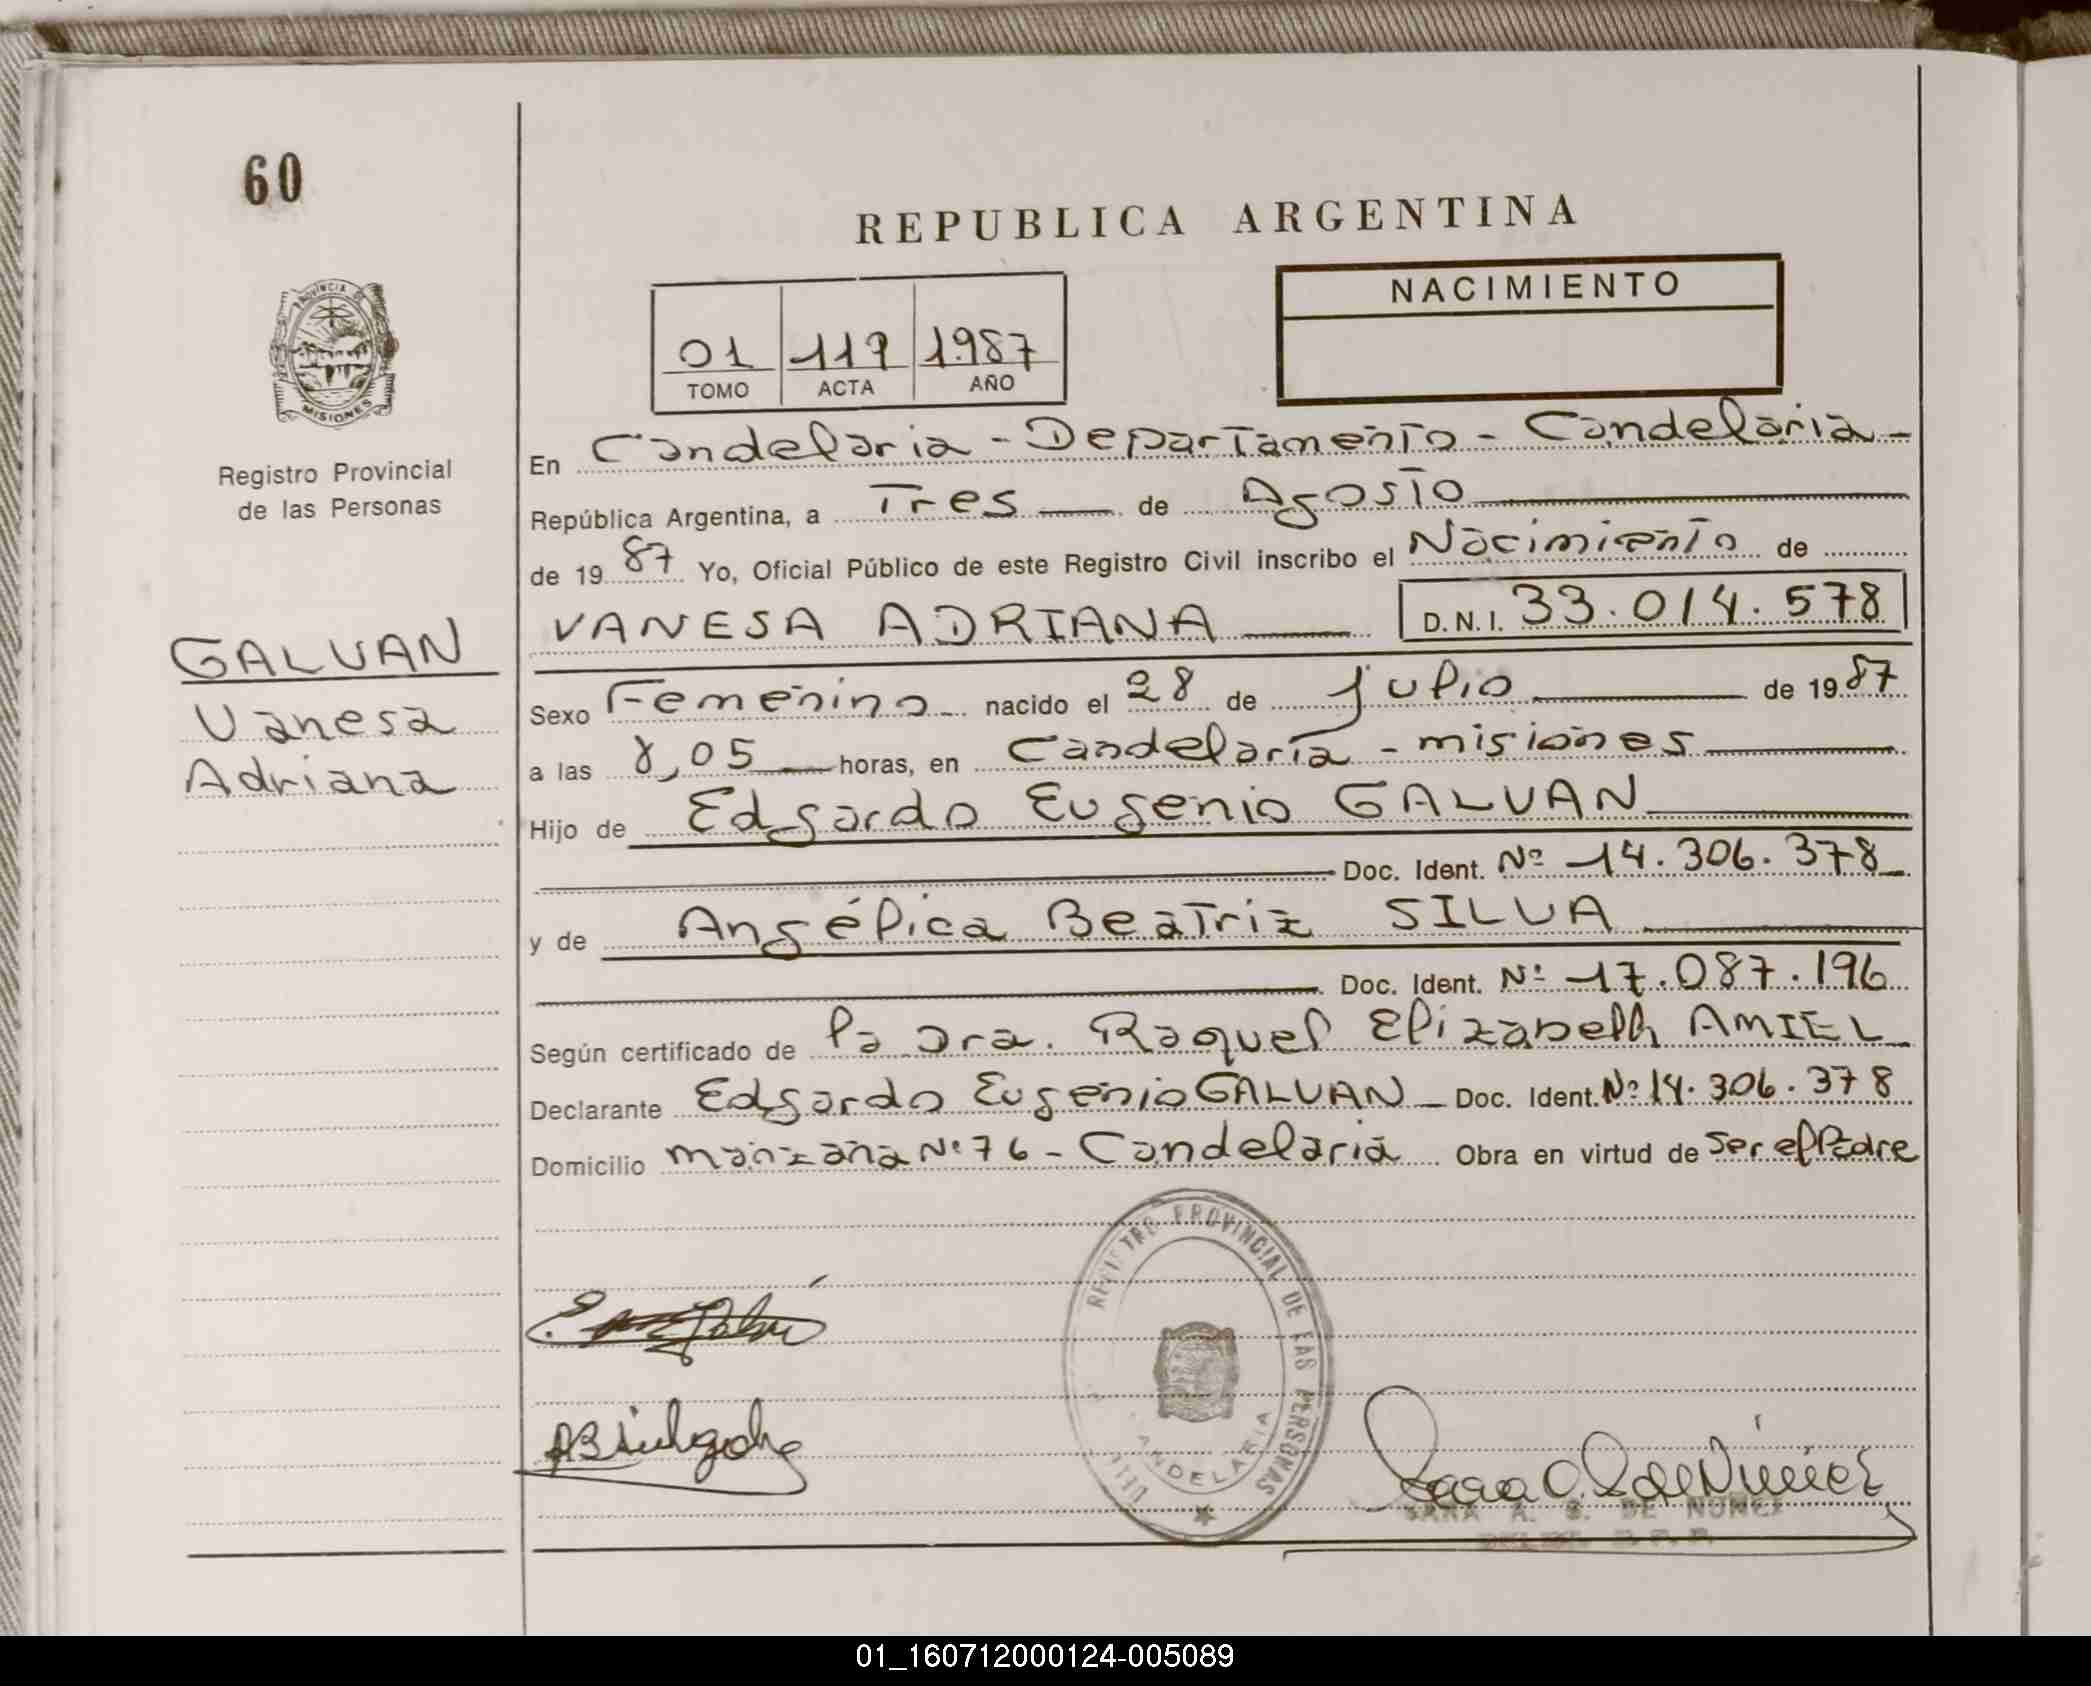 60
REPUBLICA ARGENTINA
PROVINCIA DE
MISIONES
Registro Provincial
de las Personas
01 119 1987
TOMO ACTA AÑO
NACIMIENTO
En Candelaria - Departamento - Candelaria -
República Argentina, a Tres de Agosto
de 1987 Yo, Oficial Público de este Registro Civil inscribo el Nacimiento de
VANESA ADRIANA D.N.I. 33.014.578
GALVAN
Vanesa
Adriana
Sexo Femenino nacido el 28 de julio de 1987
a las 8,05 horas, en Candelaria - misiones
Hijo de Edgardo Eugenio GALVAN
Doc. Ident. Nº 14.306.378
y de Angélica Beatriz SILVA
Doc. Ident. Nº 17.087.196
Según certificado de la Dra. Raquel Elizabeth AMIEL
Declarante Edgardo Eugenio GALVAN Doc. Ident. Nº 14.306.378
Domicilio manzana Nº 76 - Candelaria Obra en virtud de ser el Padre
REGISTRO PROVINCIAL DE LAS PERSONAS
CANDELARIA
SARA A. S. DE NUÑEZ
01_160712000124-005089